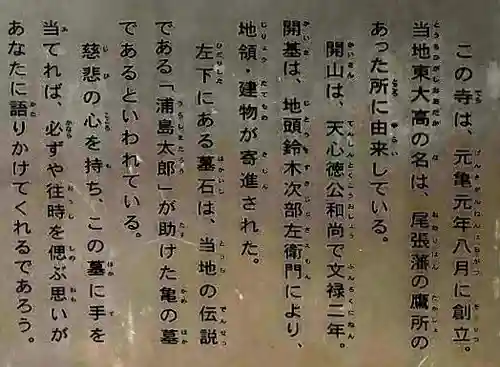 この寺は、元亀元年八月に創立。
当地東大高の名は、尾張藩の鷹所の
あった所に由来している。
開山は、天心徳公和尚で文禄二年。
開基は、地頭鈴木次部左衛門により、
地領・建物が寄進された。
左下にある墓石は、当地の伝説
である「浦島太郎」が助けた亀の墓
であるといわれている。
慈悲の心を持ち、この墓に手を
当てれば、必ずや往時を偲ぶ思いが
あなたに語りかけてくれるであろう。